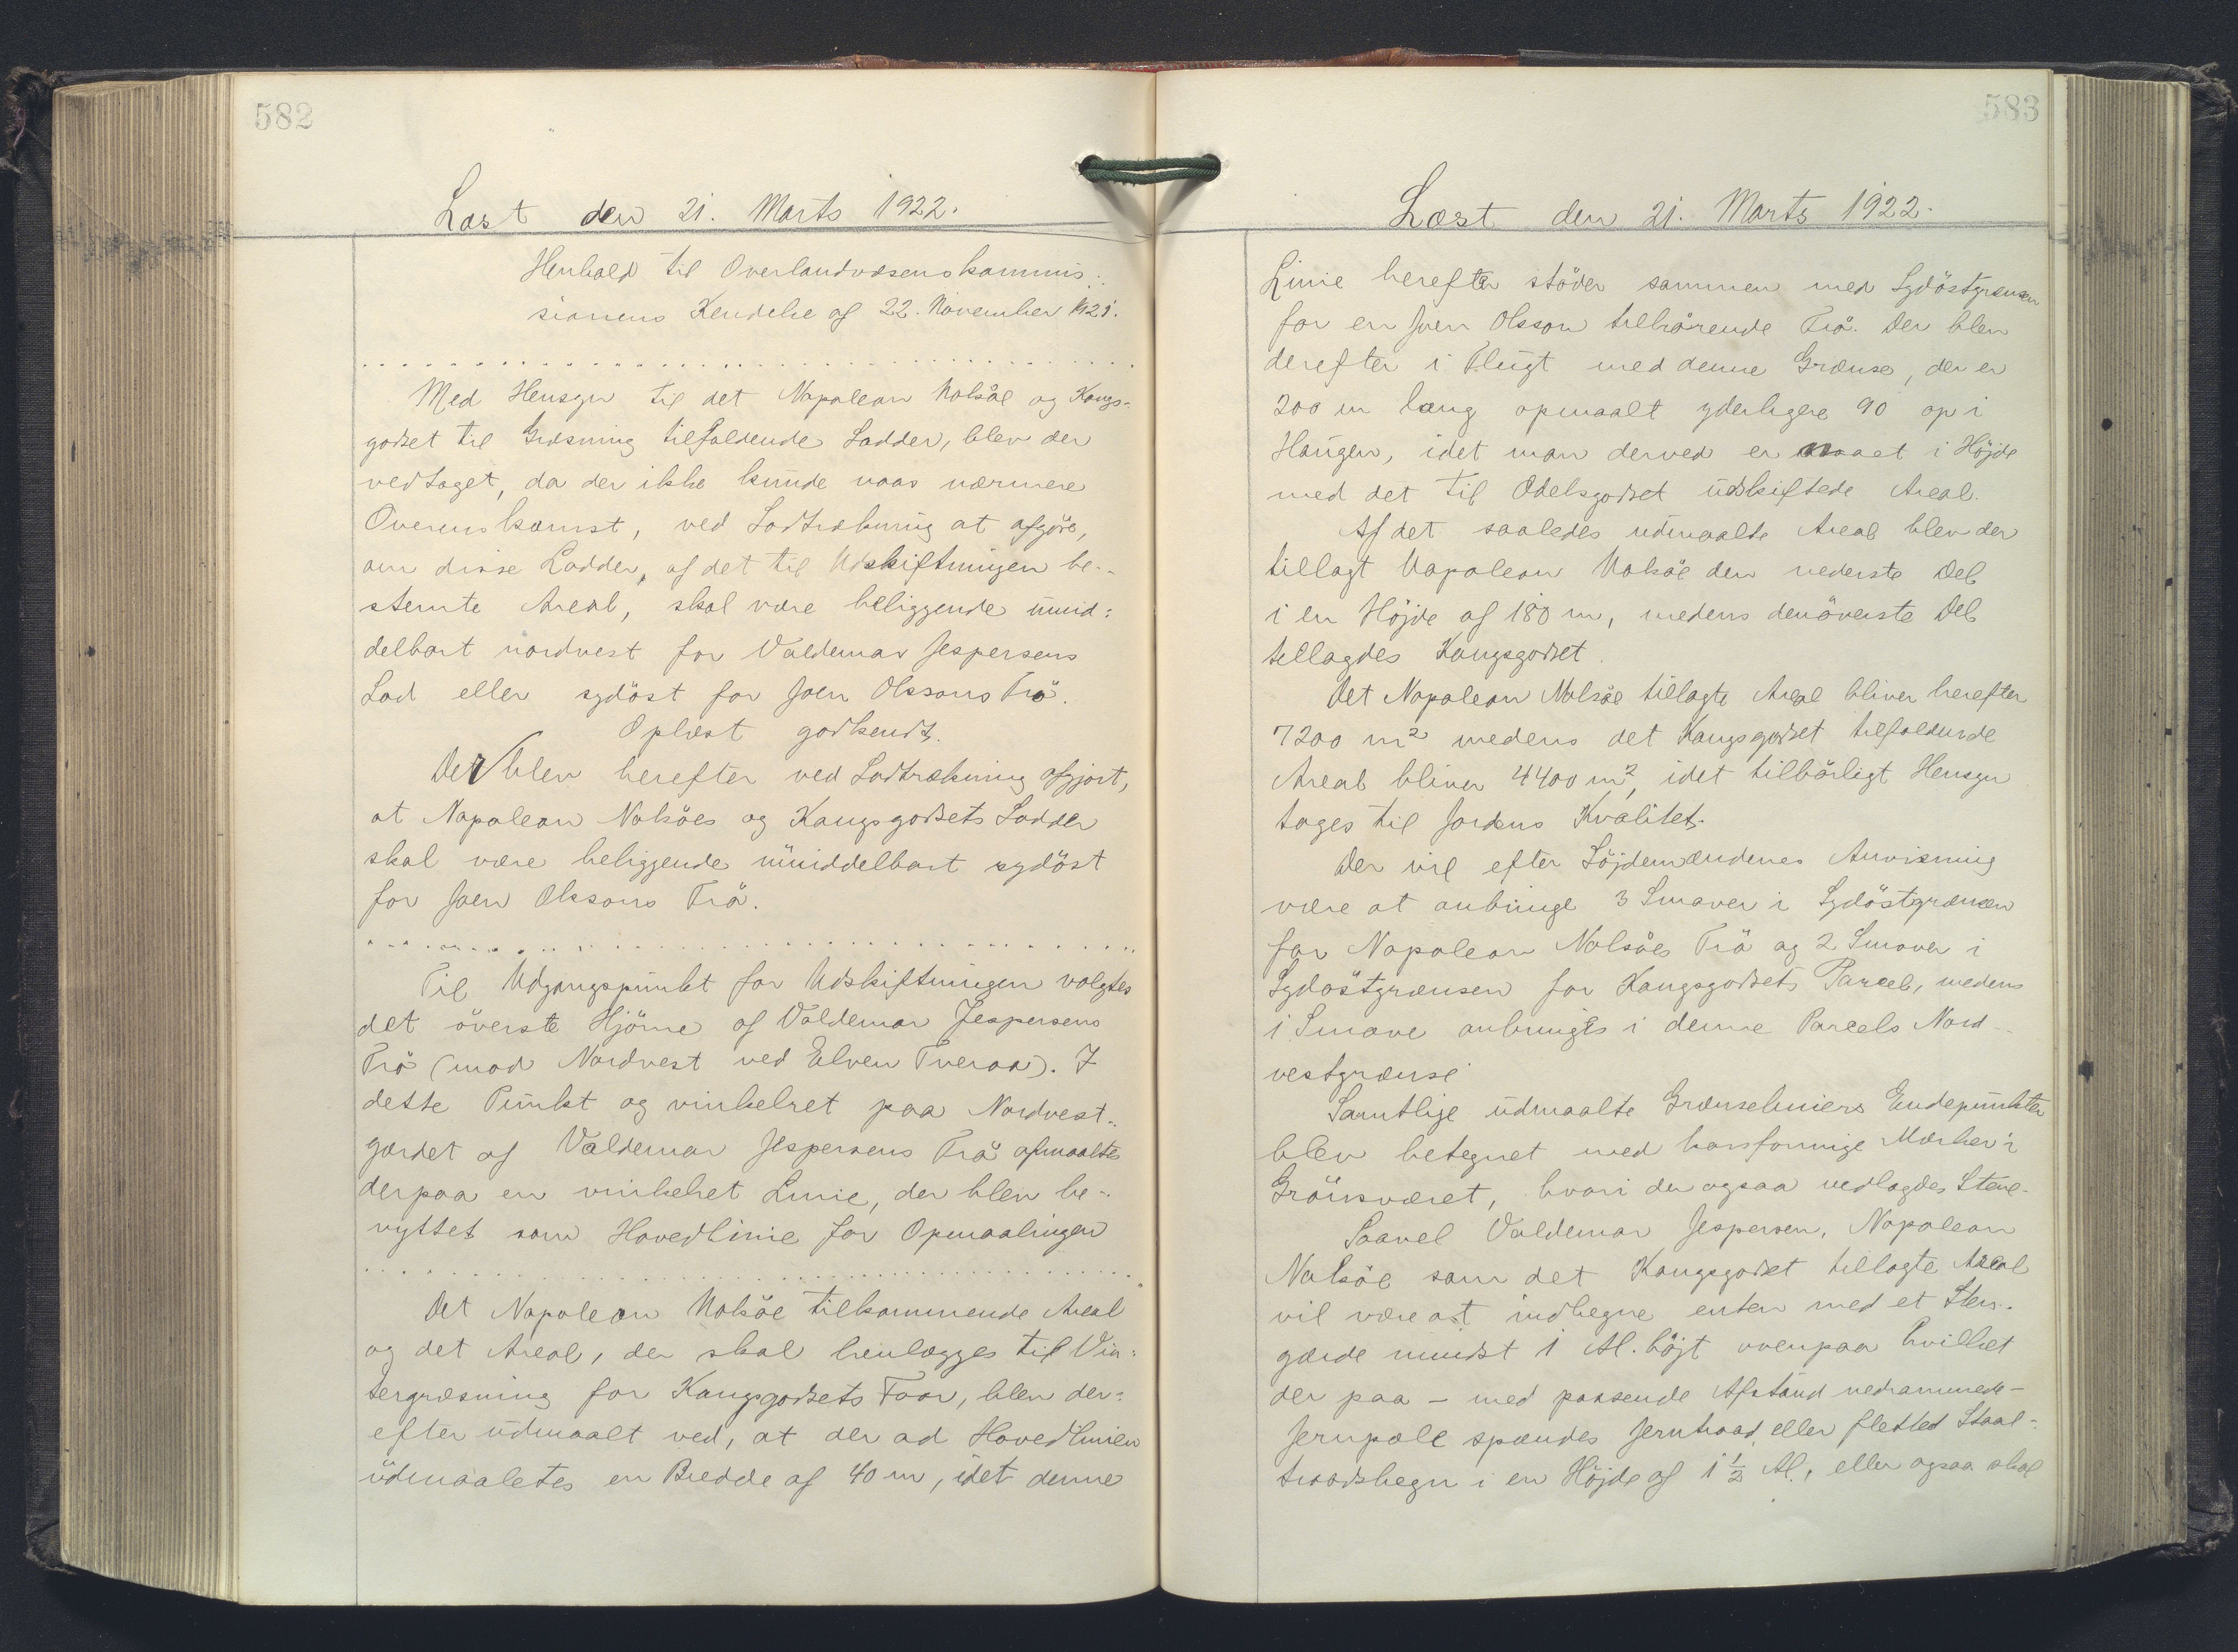 582
Læst den 21. Marts 1922.
Henhold til Overlandvæsenskommis-
sionens Kendelse af 22. November 1921.
Med Hensyn til det Napoleon Nolsöe og Kongs-
godset til Græsning tilfaldende Lodder, blev der
vedtaget, da der ikke kunde naas nærmere
Overenskomst, ved Lodtrækning at afgöre,
om disse Lodder, af det til Udskiftningen be-
stemte Areal, skal være beliggende umid-
delbart nordvest for Valdemar Jespersens
Lod eller sydöst for Joen Olssons Trö.
Oplæst godkendt.
Det blev herefter ved Lodtrækning afgjort,
at Napoleon Nolsöes og Kongsgodsets Lodder
skal være beliggende umiddelbart sydöst
for Joen Olssons Trö.
Til Udgangspunkt for Udskiftningen valgtes
det överste Hjörne af Valdemar Jespersens
Trö (mod Nordvest ved Elven Tveraa). I
dette Punkt og vinkelret paa Nordvest-
gærdet af Valdemar Jespersens Trö afmaaltes
derpaa en vinkelret Linie, der blev be-
nyttet som Hovedlinie for Opmaalingen
Det Napoleon Nolsöe tilkommende Areal
og det Areal, der skal henlægges til Vin-
tergræsning for Kongsgodsets Faar, blev der-
efter udmaalt ved, at der ad Hovedlinien
udmaaletes en Bredde af 40 m, idet denne
583
Læst den 21. Marts 1922.
Linie herefter stöder sammen med Sydöstgrænsen
for en Joen Olsson tilhörende Trö. Der blev
derefter i Flugt med denne Grænse, der er
200 m lang opmaalt yderligere 90 op i
Haugen, idet man derved er naaet i Höjde
med det til Odelsgodset udskiftede Areal.
Af det saaledes udmaalte Areal blev der
tillagt Napoleon Nolsöe den nederste Del
i en Höjde af 180 m, medens den överste Del
tillagdes Kongsgodset.
Det Napoleon Nolsöe tillagte Areal bliver herefter
7200 m² medens det Kongsgodset tilfaldende
Areal bliver 4400 m², idet tilbörligt Hensyn
tages til Jordens Kvalitet.
Der vil efter Löjdemændenes Anvisning
være at anbringe 3 Smaver i Sydöstgrænsen
for Napoleon Nolsöes Trö og 2 Smaver i
Sydöstgrænsen for Kongsgodsets Parcel, medens
1 Smave anbringes i denne Parcels Nord-
vestgrænse
Samtlige udmaalte Grænseliniers Endepunkter
blev betegnet med korsformige Mærker i
Grönsværet, hvori der ogsaa nedlagdes Stene.
Saavel Valdemar Jespersen, Napoleon
Nolsöe som det Kongsgodset tillagte Areal
vil være at indhegne enten med et Sten-
gærde mindst 1 Al. höjt ovenpaa hvilket
der paa - med passende Afstand nedrammede -
Jernpæle spændes Jerntraad eller flettet Staal-
traadshegn i en Höjde af 1 ½ Al., eller ogsaa skal